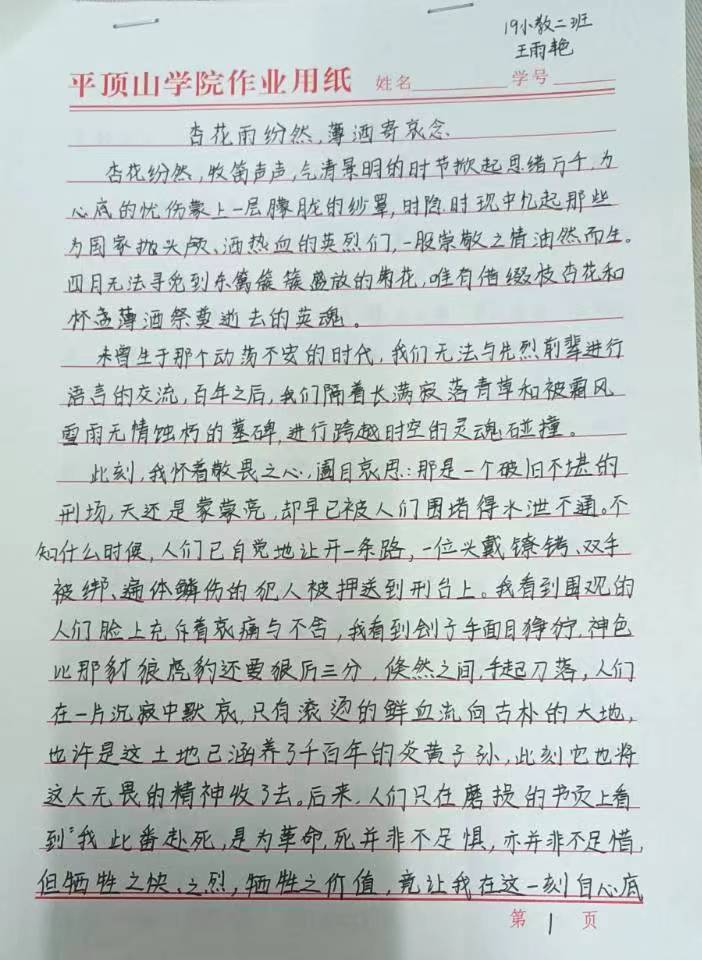 19小教二班
王雨艳
平顶山学院作业用纸 姓名 学号
杏花雨纷然,薄酒寄哀念
杏花纷然,牧笛声声,气清景明的时节掀起思绪万千,为
心底的忧伤蒙上一层朦胧的纱罩,时隐时现中忆起那些
为国家抛头颅、洒热血的英烈们,一股崇敬之情油然而生。
四月无法寻觅到东篱簇簇盛放的菊花,唯有借缀枝杏花和
怀盏薄酒祭奠逝去的英魂。
未曾生于那个动荡不安的时代,我们无法与先烈前辈进行
语言的交流,百年之后,我们隔着长满寂落青草和被霜风
雪雨无情蚀朽的墓碑,进行跨越时空的灵魂碰撞。
此刻,我怀着敬畏之心,阖目哀思:那是一个破旧不堪的
刑场,天还是蒙蒙亮,却早已被人们围堵得水泄不通。不
知什么时候,人们已自觉地让开一条路,一位头戴镣铐、双手
被绑、遍体鳞伤的犯人被押送到刑台上。我看到围观的
人们脸上充斥着哀痛与不舍,我看到刽子手面目狰狞,神色
比那豺狼虎豹还要狠厉三分,倏然之间,手起刀落,人们
在一片沉寂中默哀,只有滚烫的鲜血流向古朴的大地,
也许是这土地已涵养了千百年的炎黄子孙,此刻它也将
这大无畏的精神收了去。后来,人们只在磨损的书页上看
到“我此番赴死,是为革命,死并非不足惧,亦并非不足惜,
但牺牲之快、之烈,牺牲之价值,竟让我在这一刻自心底
第 1 页